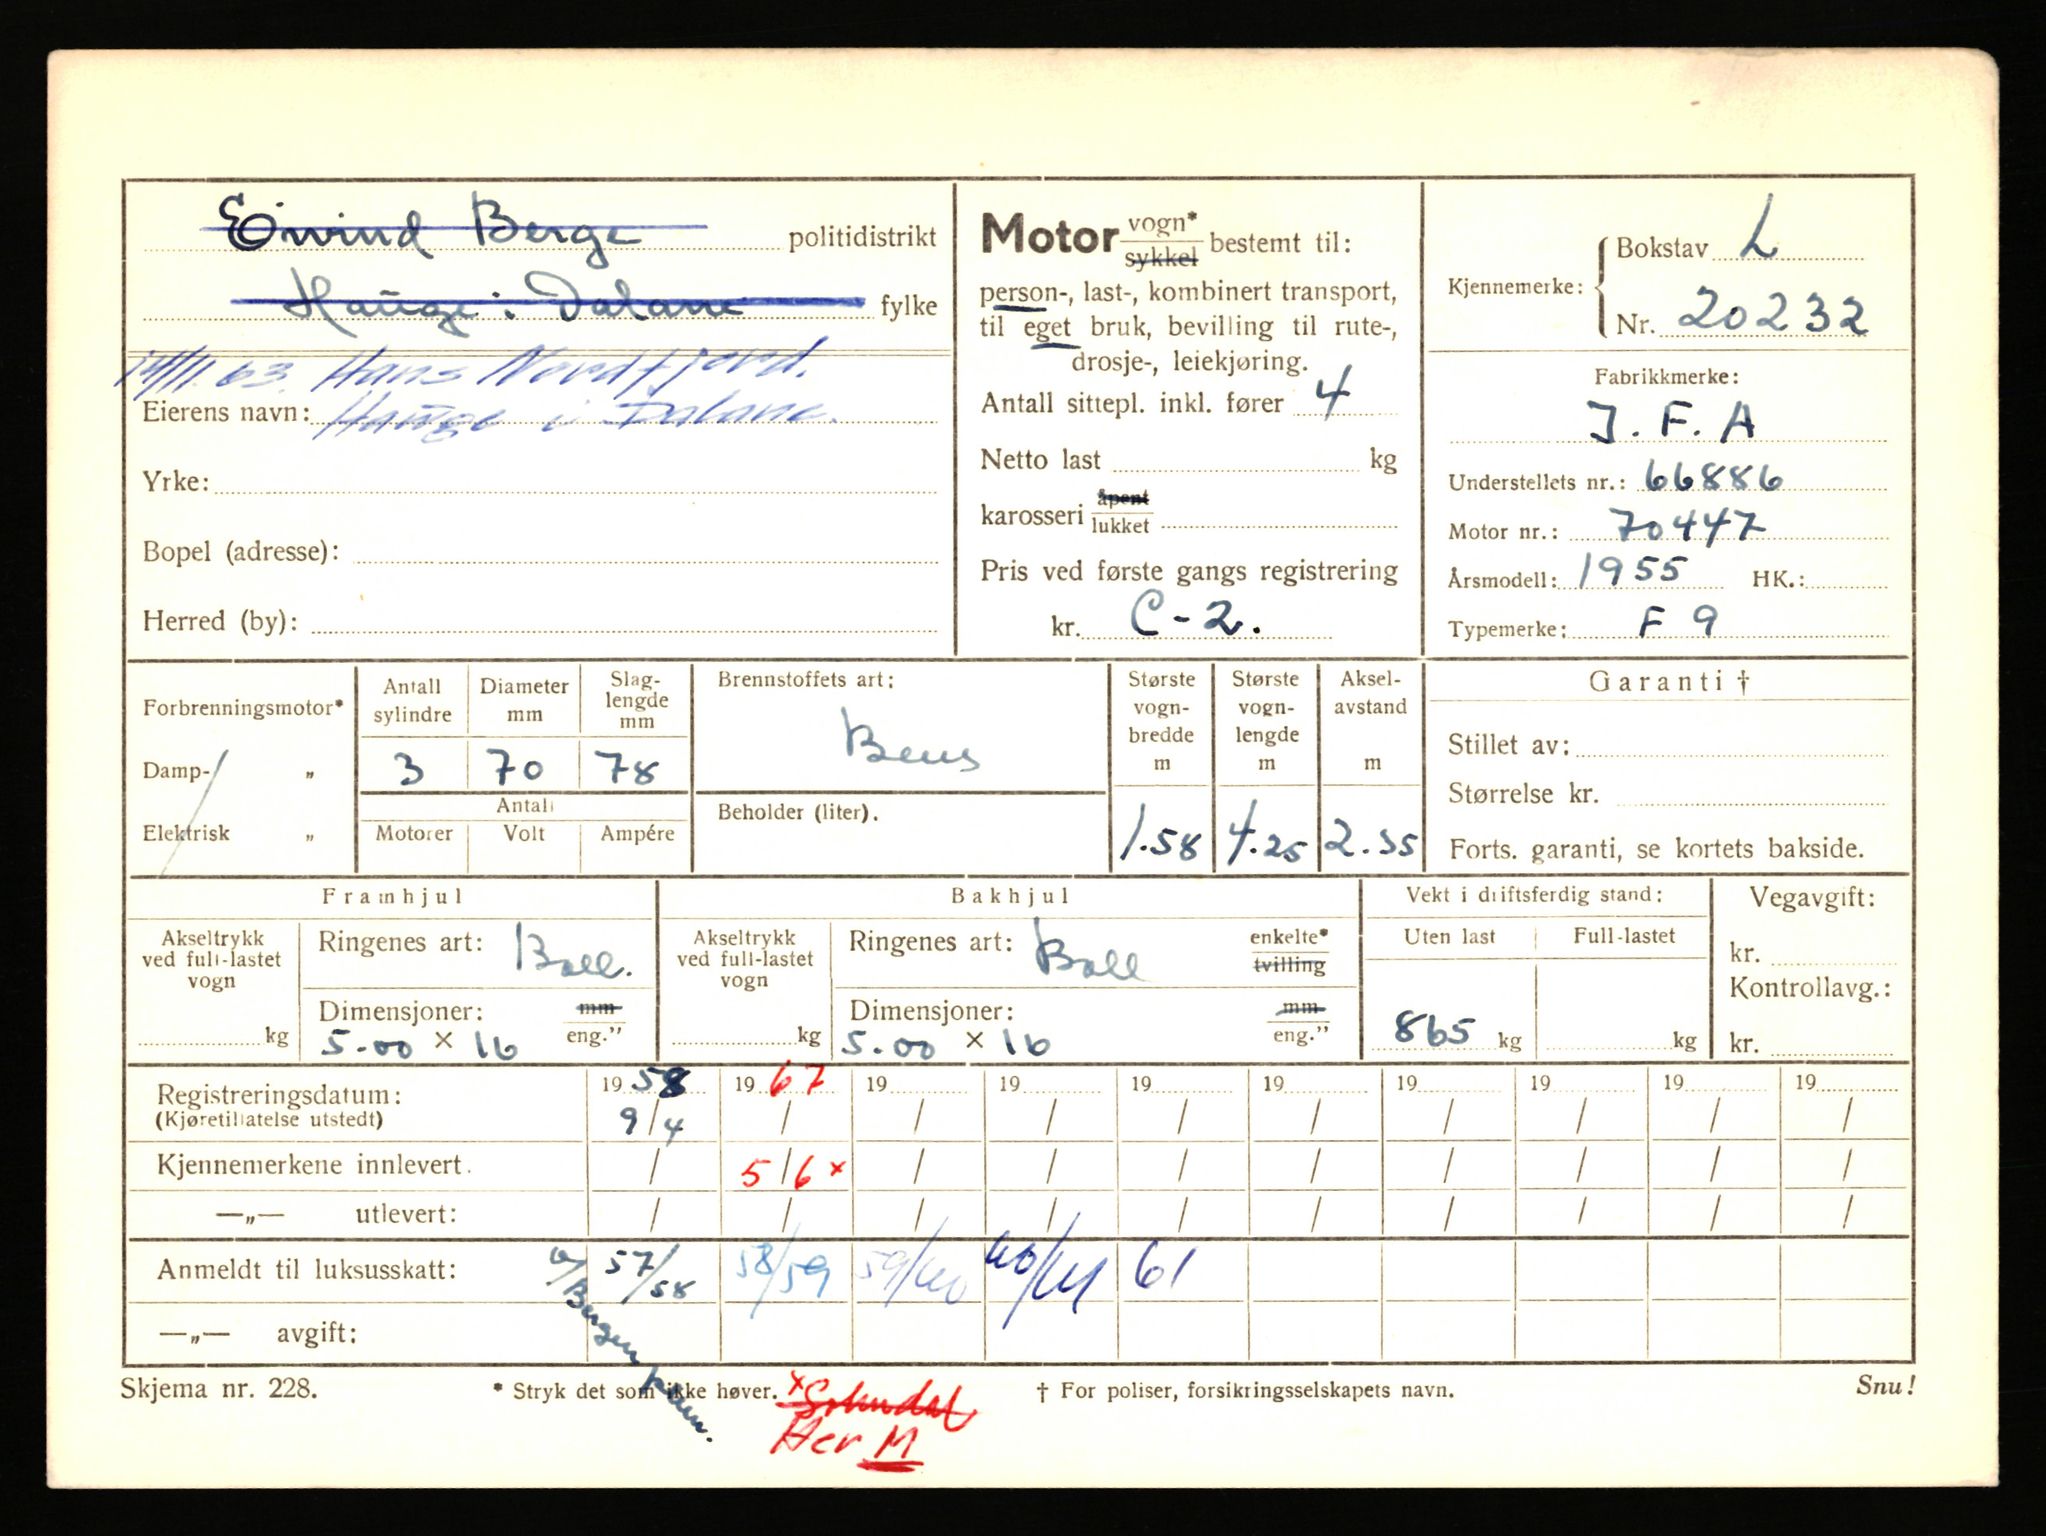 Eivind Berge politidistrikt
Hauge i Dalane fylke
14/11.63. Hans Nordfjord.
Eierens navn: Hauge i Dalane.
Yrke:
Bopel (adresse):
Herred (by):
Motor vogn* sykkel bestemt til:
person-, last-, kombinert transport,
til eget bruk, bevilling til rute-,
drosje-, leiekjøring.
Antall sittepl. inkl. fører 4
Netto last kg
karosseri åpent lukket
Pris ved første gangs registrering
kr. C-2.
Kjennemerke: Bokstav L
Nr. 20232
Fabrikkmerke:
I. F. A
Understellets nr.: 66886
Motor nr.: 70447
Årsmodell: 1955 HK.:
Typemerke: F 9
Forbrenningsmotor*
Damp- „
Elektrisk „
Antall sylindre
3
Diameter mm
70
Slag-lengde mm
78
Antall
Motorer Volt Ampére
Brennstoffets art:
Bens
Beholder (liter).
Største vogn-bredde m
1.58
Største vogn-lengde m
4.25
Aksel-avstand m
2.35
Garanti †
Stillet av:
Størrelse kr.
Forts. garanti, se kortets bakside.
Framhjul
Akseltrykk ved full-lastet vogn
kg
Ringenes art: Ball.
Dimensjoner: mm
5.00 × 16 eng.”
Bakhjul
Akseltrykk ved full-lastet vogn
kg
Ringenes art: Ball enkelte* tvilling
Dimensjoner: mm
5.00 × 16 eng.”
Vekt i driftsferdig stand:
Uten last Full-lastet
865 kg kg
Vegavgift:
kr.
Kontrollavg.:
kr.
Registreringsdatum: 19 58 19 67 19 19 19 19 19 19 19 19
(Kjøretillatelse utstedt) 9/4 / / / / / / / / /
Kjennemerkene innlevert. / 5/6 × / / / / / / / /
—„— utlevert: / / / / / / / / / /
Anmeldt til luksusskatt: 57/58 58/59 59/60 60/61 61
—„— avgift:
v/Bergen kom.
Skjema nr. 228. * Stryk det som ikke høver. † For poliser, forsikringsselskapets navn. Snu!
× Sokndal
Her M